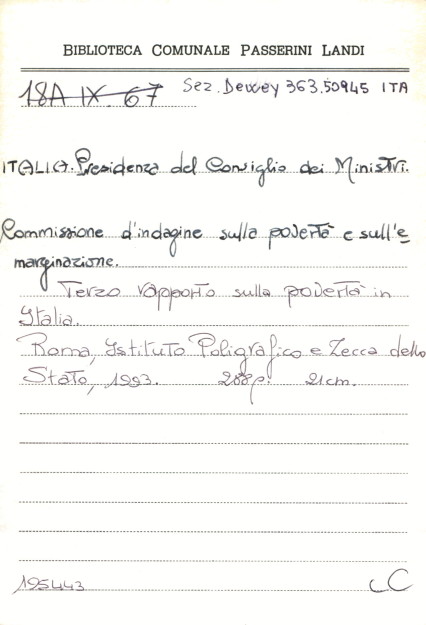 BIBLIOTECA COMUNALE PASSERINI LANDI
18A IX. 67 Sez. Dewey 363.50945 ITA
ITALIA. Presidenza del Consiglio dei Ministri.
Commissione d'indagine sulla povertà e sull'e
marginazione.
Terzo rapporto sulla povertà in
Italia.
Roma, Istituto Poligrafico e Zecca dello
Stato, 1993. 208p. 21cm.
195443 CC